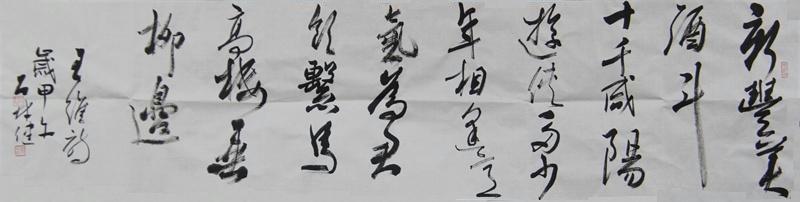 新豐美
酒斗
十千咸陽
遊俠多少
年相逢意
氣為君
飲繫馬
高樓垂
柳邊
王維詩
歲甲午